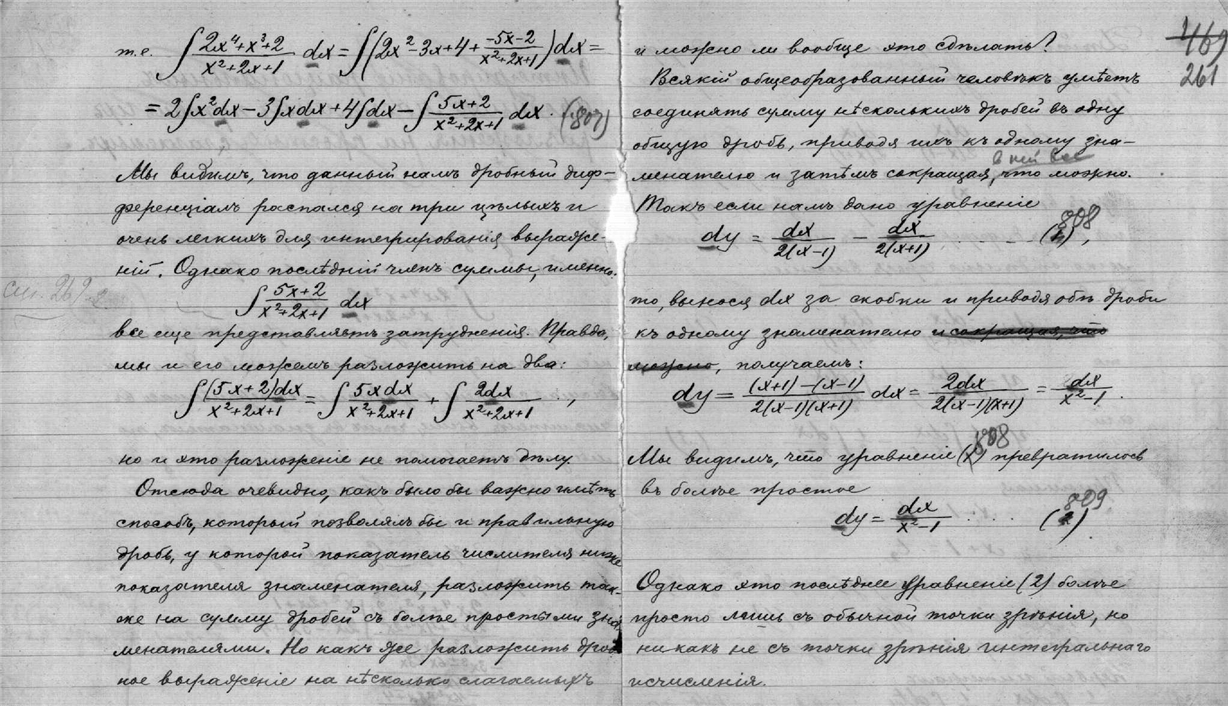 т.е. ∫ (2x⁴+x³+2)/(x²+2x+1) dx = ∫(2x²-3x+4+ (-5x-2)/(x²+2x+1)) dx =
= 2∫x²dx - 3∫xdx + 4∫dx - ∫ (5x+2)/(x²+2x+1) dx. (807)
Мы видимъ, что данный намъ дробный диф-
ференціалъ распался на три цѣлыхъ и
очень легкихъ для интегрированія выраже-
ній. Однако послѣдній членъ суммы, именно:
∫ (5x+2)/(x²+2x+1) dx
все еще представляетъ затрудненія. Правда,
мы и его можемъ разложить на два:
∫ (5x+2)dx/(x²+2x+1) = ∫ 5xdx/(x²+2x+1) + ∫ 2dx/(x²+2x+1) ,
но и это разложеніе не помогаетъ дѣлу.
Отсюда очевидно, какъ было бы важно имѣть
способъ, который позволялъ бы и правильную
дробь, у которой показатель числителя ниже
показателя знаменателя, разложить так-
же на сумму дробей съ болѣе простыми зна-
менателями. Но какъ же разложить дроб-
ное выраженіе на нѣсколько слагаемыхъ
469
261
и можно ли вообще это сдѣлать?
Всякій общеобразованный человѣкъ умѣетъ
соединять сумму нѣсколькихъ дробей въ одну
общую дробь, приводя ихъ къ одному зна-
в ней все
менателю и затѣмъ сокращая, что можно.
Такъ если намъ дано уравненіе
dy = dx/2(x-1) - dx/2(x+1) . . . . . (808),
то, вынося dx за скобки и приводя обѣ дроби
къ одному знаменателю и сокращая, что
можно, получаемъ:
dy = ((x+1)-(x-1))/2(x-1)(x+1) dx = 2dx/2(x-1)(x+1) = dx/(x²-1).
Мы видимъ, что уравненіе (808) превратилось
въ болѣе простое
dy = dx/(x²-1) . . . . (809)
Однако это послѣднее уравненіе (2) болѣе
просто лишь съ обычной точки зрѣнія, но
никакъ не съ точки зрѣнія интегральнаго
исчисленія.